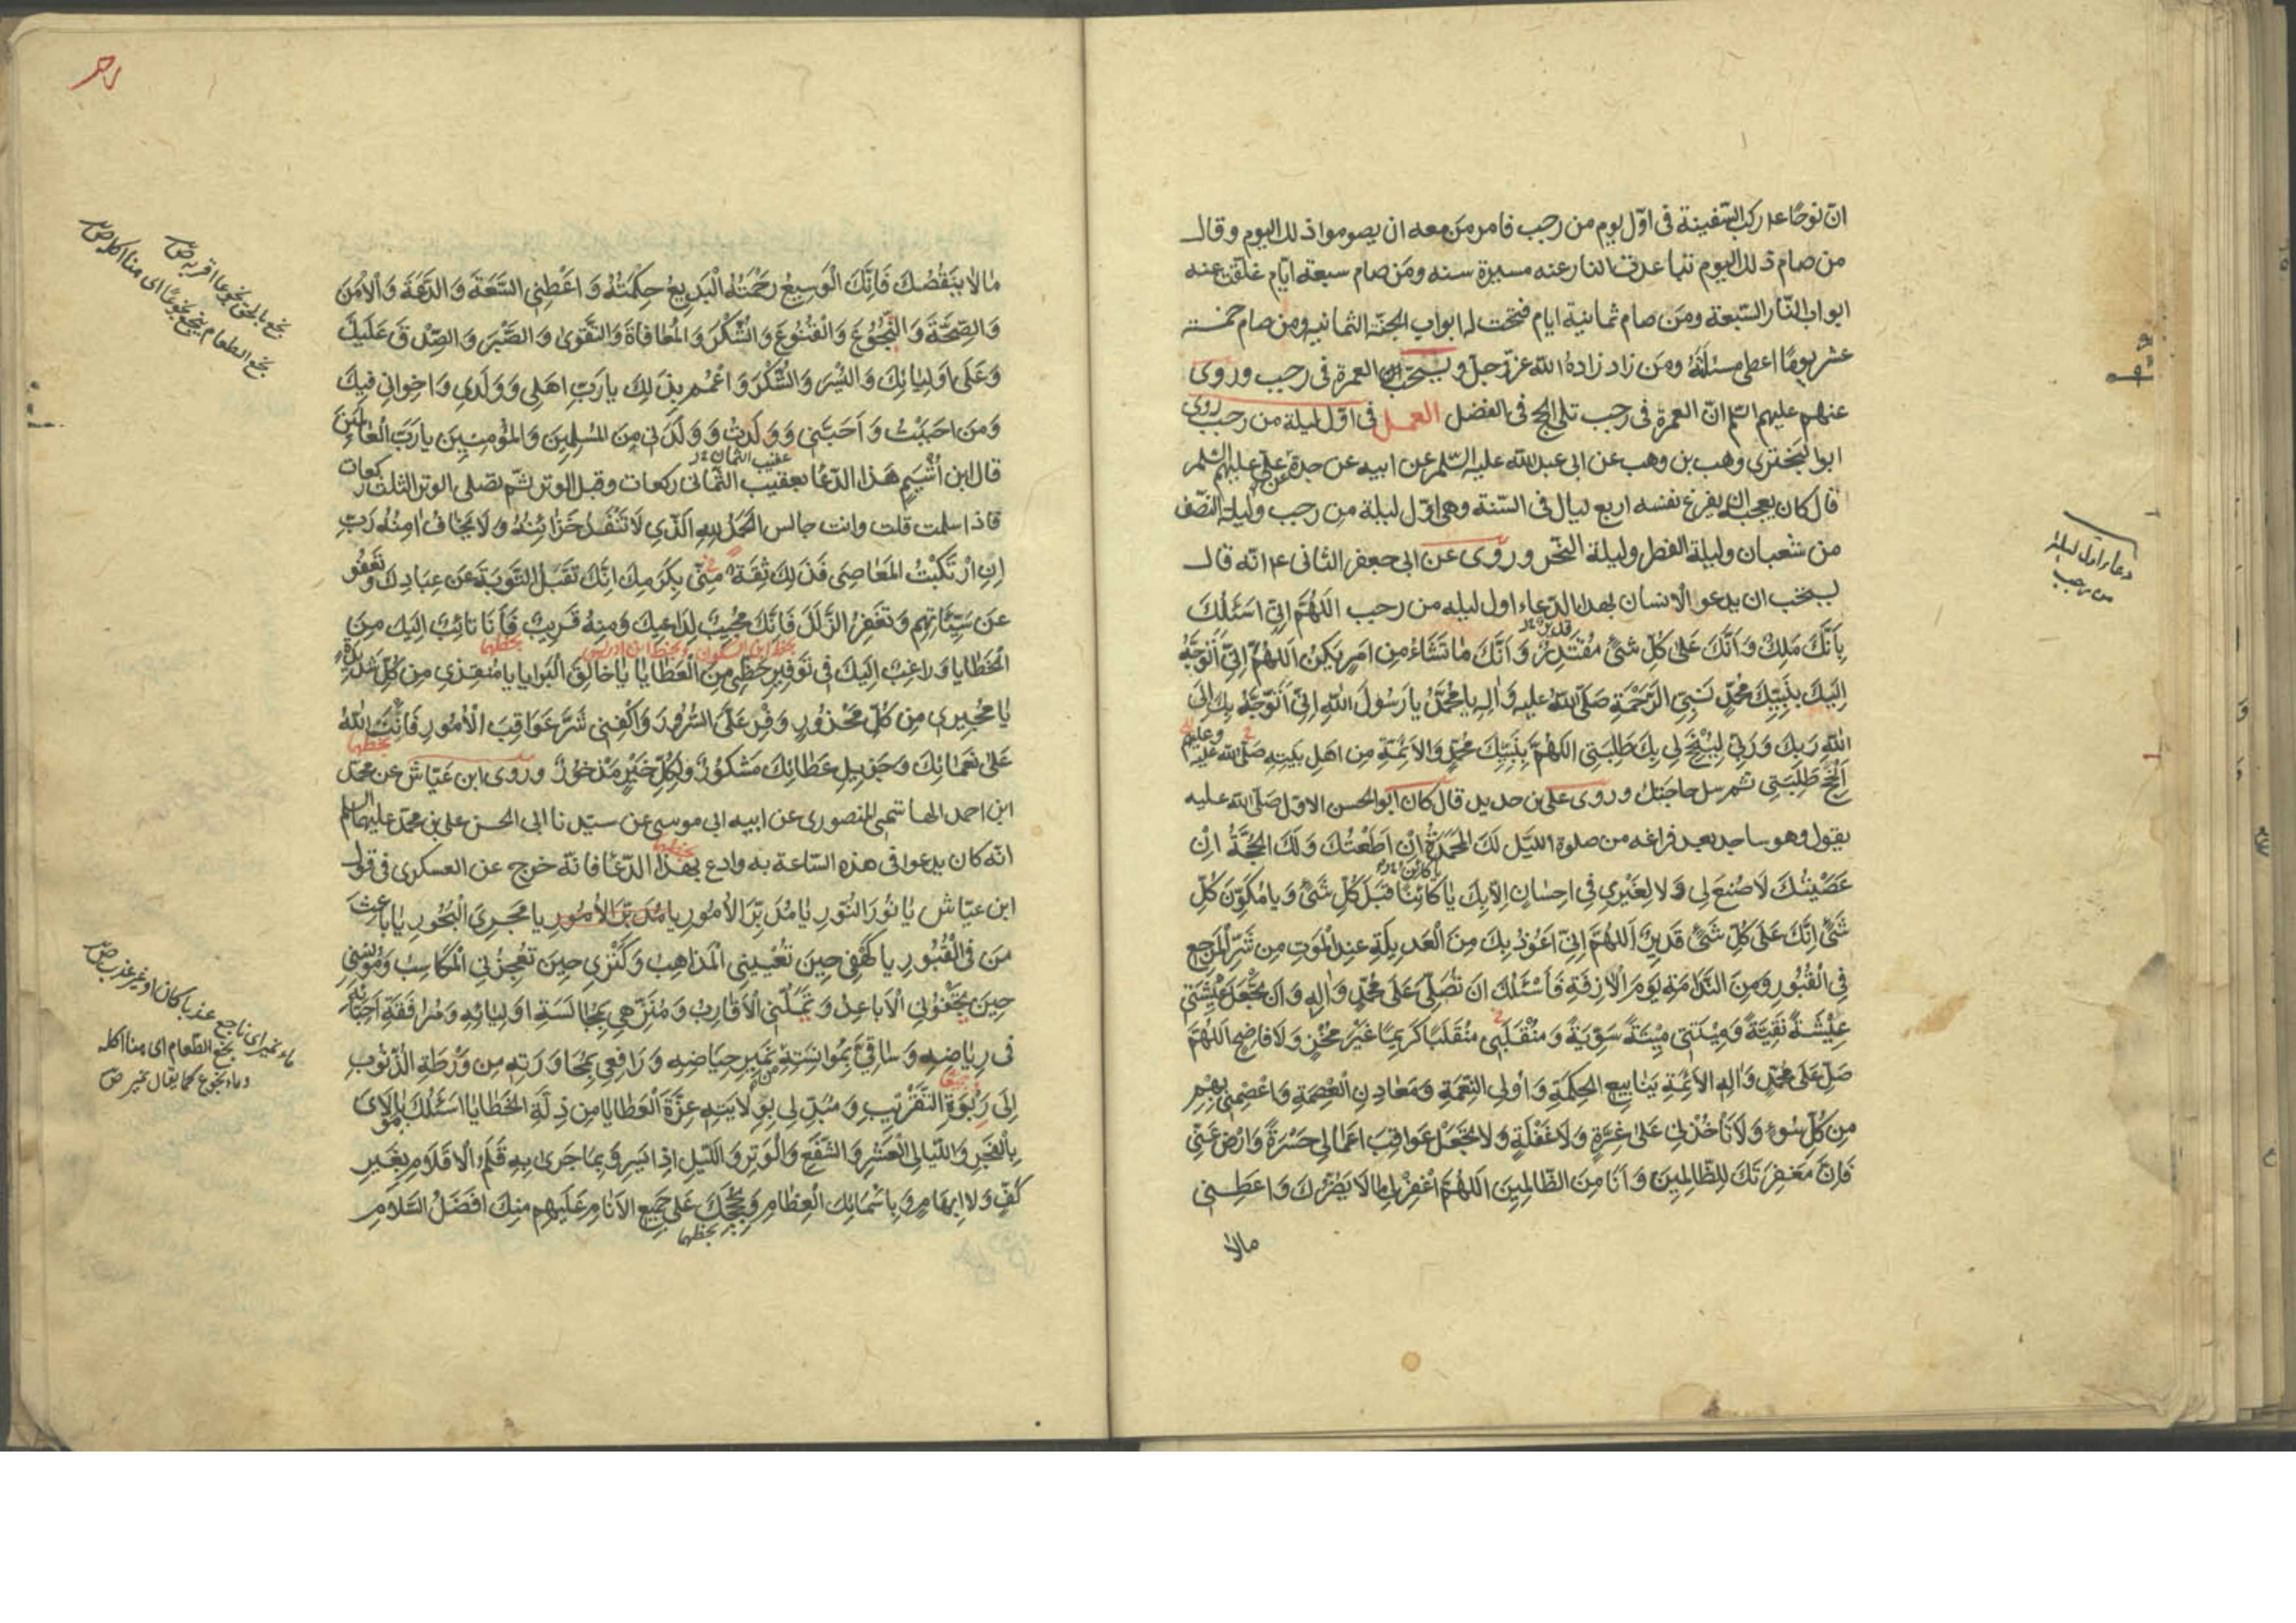 انّ نوحًا ع م ركب السّفينة فى اوّل يوم من رجب فامر من معه ان يصوموا ذلك اليوم وقال
من صام ذلك اليوم تباعدت النار عنه مسيرة سنه ومَن صام سبعة ايّام غلّقت عنه
ابواب النّار السّبعة ومَن صام ثمانية ايام فتحت له ابواب الجنّة الثمانيه ومن صام خمسة
عشر يومًا اعطى مسئلَتَهُ ومَن زاد زادهُ الله عزّ وجلّ ويستحبّ العمرة فى رجب وروى
عنهم عليهم السّلم انّ العمرة فى رجب تلى الحج فى الفضل العمل فى اوّل ليلة من رجب روى
ابوا البَختري وهب بن وهب عن ابى عبد الله عليه السّلم عن ابيه عن جدّه عن علىّ عليهم السّلم
قال كان يعجبه ان يفرغ نفسه اربع ليال فى السّنة وهى اوّل ليلة من رجب وليلة النّصف
من شعبان وليلة الفطر وليلة النّحر وروى عن ابى جعفر الثانى ع م انّه قال
يستحب ان يدعو الانسان بهذا الدّعاء اول ليله من رجب اَللهُمَّ اِنّى اَسْئَلُكَ
بِاَنَّكَ مَلِكٌ وَ اَنَّكَ عَلىٰ كُلِّ شَىْءٍ مُقْتَدِرٌ وَ اَنَّكَ مٰا تَشٰاءُ مِن اَمرٍ يَكُنْ اَللهُمَّ اِنّى اَتَوَجَّهُ
اِلَيكَ بِنَبِيِّكَ مُحَمَّدٍ نَبِيِّ الرَّحْمَةِ صَلَّى اللهُ عليهِ وَ اٰلِهِ يا مُحَمَّدُ يا رَسُولَ اللهِ اِنّى اَتَوَجَّهُ بِكَ اِلىَ
اللهِ رَبِّكَ وَرَبّى لِيُنْجِحَ لى بِكَ طَلِبَتى اَللهُمَّ بِنَبِيِّكَ مُحَمَّدٍ وَالاَئِمَّةِ مِن اَهلِ بَيتِهِ صَلَّى الله عَلَيْهِ وعليهم
اَنْجِحْ طَلِبَتى ثم سل حاجتك وروى على بن حديد قال كان ابو الحسن الاوّل صَلّى الله عليه
يقول وهو ساجد بعد فراغه من صلوة اللّيل لَكَ المَحْمَدَةُ اِنْ اَطَعْتُكَ وَ لَكَ الحُجَّةُ اِنْ
عَصَيْتُكَ لاٰ صُنعَ لى وَ لا لِغَيْرى فى اِحسٰانٍ اِلاّ بِكَ يٰا كٰائِنًا قَبلَ كُلِّ شَىْءٍ وَ يا مُكَوِّنَ كُلِّ
شَىْءٍ اِنَّكَ عَلىٰ كُلِّ شَىْءٍ قَديرٌ اَللهُمَّ اِنّى اَعُوذُ بِكَ مِنَ العَديلَةِ عِندَ المَوتِ وَ مِن شَرِّ المَرجِعِ
فِى القُبُورِ وَمِنَ النَّدٰامَةِ يَومَ الاٰزِفَةِ فَاَسْئَلُكَ اَن تُصَلِّىَ عَلىٰ مُحَمَّدٍ وَ اٰلِهِ وَ اَن تَجْعَلَ عيشَتى
عيشَةً نَقِيَّةً وَميتَتى ميتَةً سَوِيَّةً وَ مُنْقَلَبى مُنْقَلَبًا كَريمًا غَيْرَ مُخْزٍ وَ لاٰ فاضِحٍ اَللهُمَّ
صَلِّ عَلىٰ مُحَمَّدٍ وَ اٰلِهِ الاَئِمَّةِ يَنٰابيعِ الحِكمَةِ وَ اُولِى النِّعمَةِ وَ مَعٰادِنِ العِصمَةِ وَ اعْصِمْنى بِهِمْ
مِن كُلِّ سُوءٍ وَ لاٰ تَأْخُذْنى عَلىٰ غِرَّةٍ وَ لاٰ غَفْلَةٍ وَ لا تَجْعَلْ عَواقِبَ اَعمٰالى حَسْرَةً وَ ارْضَ عَنّى
فَاِنَّ مَغفِرَتَكَ لِلظّالِمينَ وَ اَنَا مِنَ الظّالِمينَ اَللهُمَّ اغْفِرْ لى مٰا لاٰ يَضُرُّكَ وَ اَعْطِنى
مالا
دعاء اول ليلة
من رجب
مٰا لاٰ يَنقُصُكَ فَاِنَّكَ الوَسيعُ رَحْمَتُهُ البَديعُ حِكْمَتُهُ وَ اَعْطِنِى السَّعَةَ وَ الدَّعَةَ وَ الاَمْنَ
وَ الصِّحَّةَ وَ النُّجُوعَ وَ القُنُوعَ وَ الشُّكْرَ وَ المُعٰافٰاةَ وَ التَّقوىٰ وَ الصَّبْرَ وَ الصِّدقَ عَلَيكَ
وَ عَلىٰ اَولِيٰائِكَ وَ اليُسْرَ وَ الشُّكْرَ وَ اعْمُمْ بِذٰلِكَ يا رَبِّ اَهلى وَ وَلَدى وَ اِخوانى فيكَ
وَ مَن اَحبَبْتُ وَ اَحَبَّنى وَ وَلَدْتُ وَ وَلَدَنى مِنَ المُسلِمينَ وَ المُؤمِنينَ يا رَبَّ العٰالَمينَ
قال ابن اُشَيْمٍ هَذا الدّعا بعقيب الثّمانى ركعات وقبل الوتر ثمّ تصلى الوتر الثلث ركعات
فاذا سلمت قلت وانت جالس الحَمْدُ لِلّهِ الَّذى لاٰ تَنْفَدُ خَزٰائِنُهُ وَ لاٰ يَخٰافُ اٰمِنُهُ رَبِّ
اِنِ ارْتَكَبْتُ المَعٰاصِىَ فَذٰلِكَ ثِقَةٌ مِنّى بِكَرَمِكَ اِنَّكَ تَقْبَلُ التَّوبَةَ عَن عِبٰادِكَ وَ تَعْفُو
عَن سَيِّئاتِهِم وَ تَغْفِرُ الزَّلَلَ فَاِنَّكَ مُجيبٌ لِداعيكَ وَ مِنهُ قَريبٌ فَاَنَا تائِبٌ اِلَيكَ مِنَ
الخَطايا وَ راغِبٌ اِلَيكَ فى تَوفيرِ حَظّى مِنَ العَطايا يٰا خالِقَ البَرايا يا مُنقِذى مِن كُلِّ شَديدَةٍ
يا مُجيرى مِن كُلِّ مَحْذُورٍ وَفِّرْ عَلَىَّ السُّرُورَ وَ اكْفِنى شَرَّ عَواقِبِ الاُمُورِ فَاِنَّكَ اللهُ
عَلىٰ نَعمٰائِكَ وَ جَزيلِ عَطائِكَ مَشكُورٌ وَ لِكُلِّ خَيرٍ مَذخُورٌ وروى ابن عَيّاش عن محمّد
ابن احمد الهاشمى المنصورى عن ابيه ابى موسى عن سيّدنا ابى الحسن على بن محمّد عليهما السلم
انّه كان يدعوا فى هذه السّاعة به وادع بهذا الدّعا فانّه خرج عن العسكرى فى قول
ابن عيّاش يٰا نُورَ النُّورِ يٰا مُدَبِّرَ الاُمُورِ يا مُدَبِّرَ الاُمُورِ يا مُجرِىَ البُحُورِ يٰا باعِثَ
مَن فِى القُبُورِ يا كَهْفى حينَ تُعْيينِى المَذاهِبُ وَ كَنْزى حينَ تُعجِزُنِى المَكاسِبُ وَ مُونِسى
حينَ تَجْفُونِى الاَباعِدُ وَ تَمَلُّنِى الاَقارِبُ وَ مُنَزِّهى بِمُجٰالَسَةِ اَولِيائِهِ وَ مُرافَقَةِ اَحِبّائِهِ
فى رِياضِهِ وَ سٰاقِىَّ بِمُوانَسَتِهِ مِن نَميرِ حِياضِهِ وَ رافِعى بِمُجاوَرَتِهِ مِن وَرْطَةِ الذُّنُوبِ
اِلىٰ رَبْوَةِ التَّقْريبِ وَ مُبَدِّلى بِوِلايَتِهِ عِزَّةَ العَطايا مِن ذِلَّةِ الخَطايا اَسئَلُكَ يا مَولاىَ
بِالفَجْرِ وَ اللَّيالِى العَشْرِ وَ الشَّفْعِ وَ الوَترِ وَ اللَّيلِ اِذا يَسرِ وَ بِما جَرىٰ بِهِ قَلَمُ الاَقلامِ بِغَيرِ
كَفٍّ وَ لا اِبهامٍ وَ بِاَسْمٰائِكَ العِظٰامِ وَ بِحُجَجِكَ عَلىٰ جَميعِ الاَنامِ عَلَيهِم مِنكَ اَفضَلُ السَّلامِ
بخطهما
نجع بالحق نجوعا اقر به ص
نجع الطعام ينجع نجوعًا اى هنأ اكله ص
ماء نمير اى ناجع عذبا كان او غير عذب ص
نجع الطّعام اى هنأ اكله